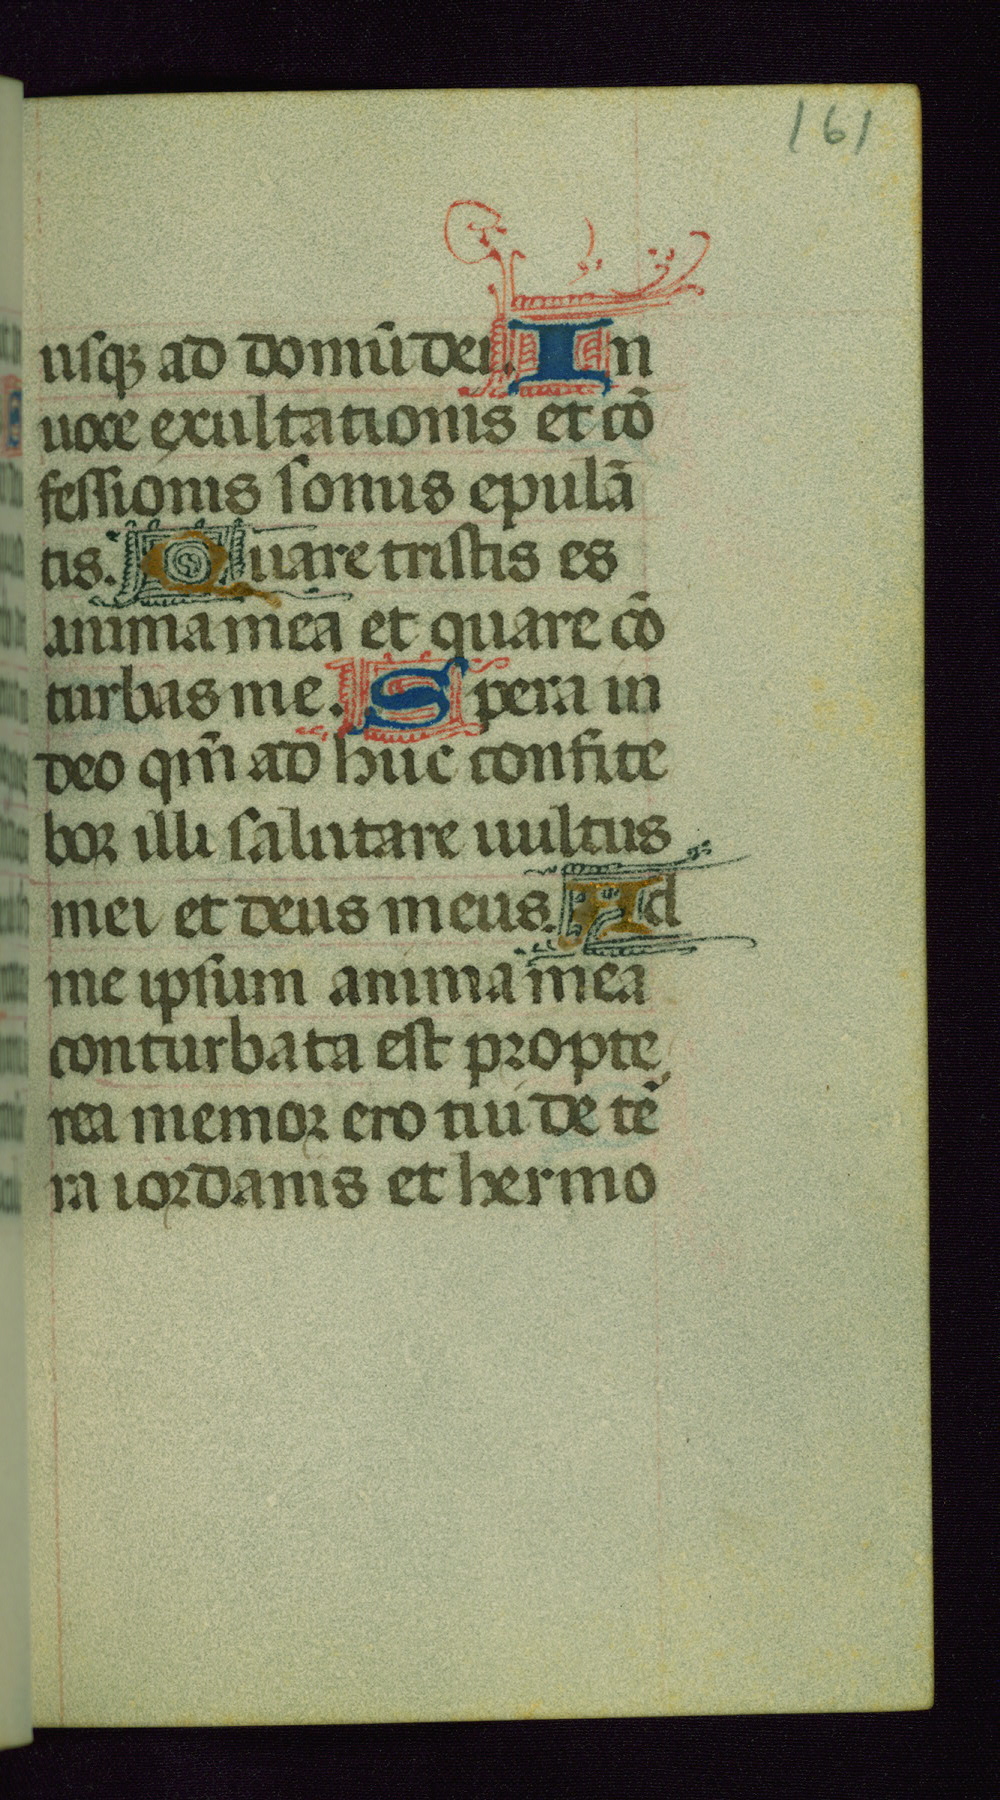 161
usqꝫ ad domū dei. In
uoce exultationis et cō
fessionis sonus epulā
tis. Quare tristis es
anima mea et quare cō
turbas me. Spera in
deo qm̄ ad huc confite
bor illi salutare uultus
mei et deus meus. Ad
me ipsum anima mea
conturbata est propte
rea memor ero tui de tē
ra iordanis et hermo